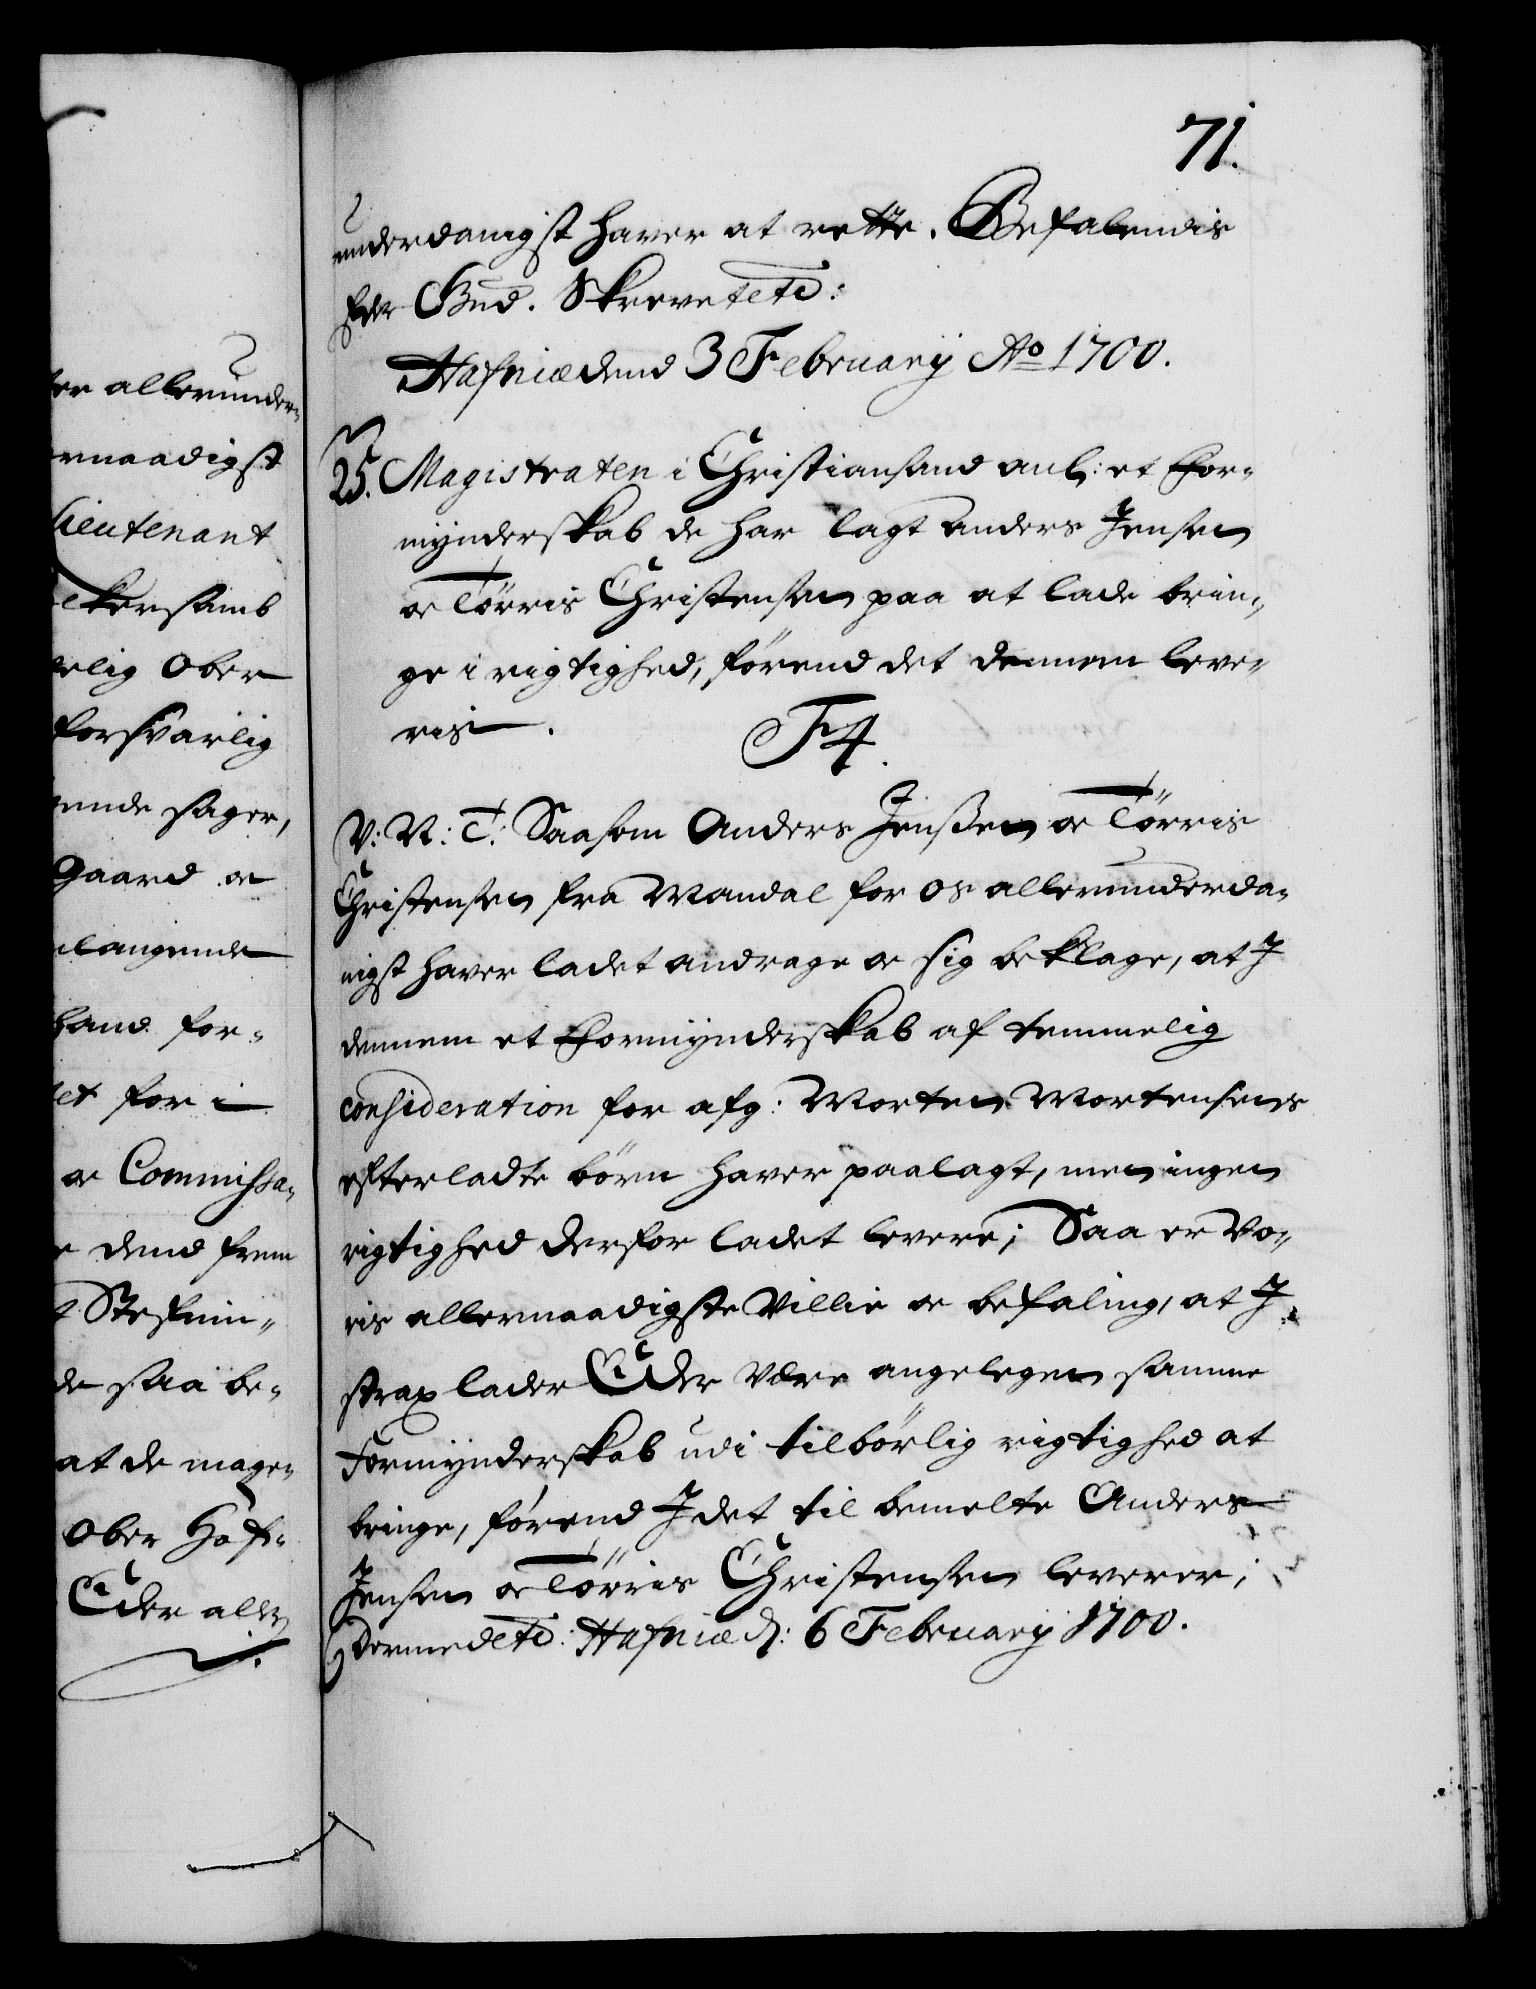 71.
underdanigst haver at rette. Befalendis
Eder Gud. Skrevet etc:
Hafniæ dend 3 February Ao 1700.
25. Magistraten i Christiansand anl: et For-
mynderskab de har lagt Anders Jensen
oc Törris Christensen paa at lade brin-
ge i rigtighed, förend det dennem leve-
ris.
F4.
V: N: T: Saasom Anders Jenssen oc Törris
Christensen fra Mandal for os allerunderda-
nigst haver ladet andrage oc sig beklage, at I
dennem et Formynderskab af temmelig
consideration for afg: Morten Mortensens
efterladte börn haver paalagt, men ingen
rigtighed derfor ladet levere; Saa er Vo-
ris allernaadigste Villie oc befaling, at I
strax lader Eder være angelegen samme
Formynderskab udi tilbörlig rigtighed at
bringe, förend I det til bemelte Anders
Jensen oc Törris Christensen leverer;
Dermed etc: Hafniæ d: 6 February 1700.
ter allerunder-
rnaadigst
Lieutenant
ekersamb
rlig Ober
forsvarlig
ende sager,
Gaard oc
elangende
hand for-
et for i
oc Commissa-
e dend frem
t Stefnin-
de saa be-
at de mage-
Ober Hof-
Eder aller